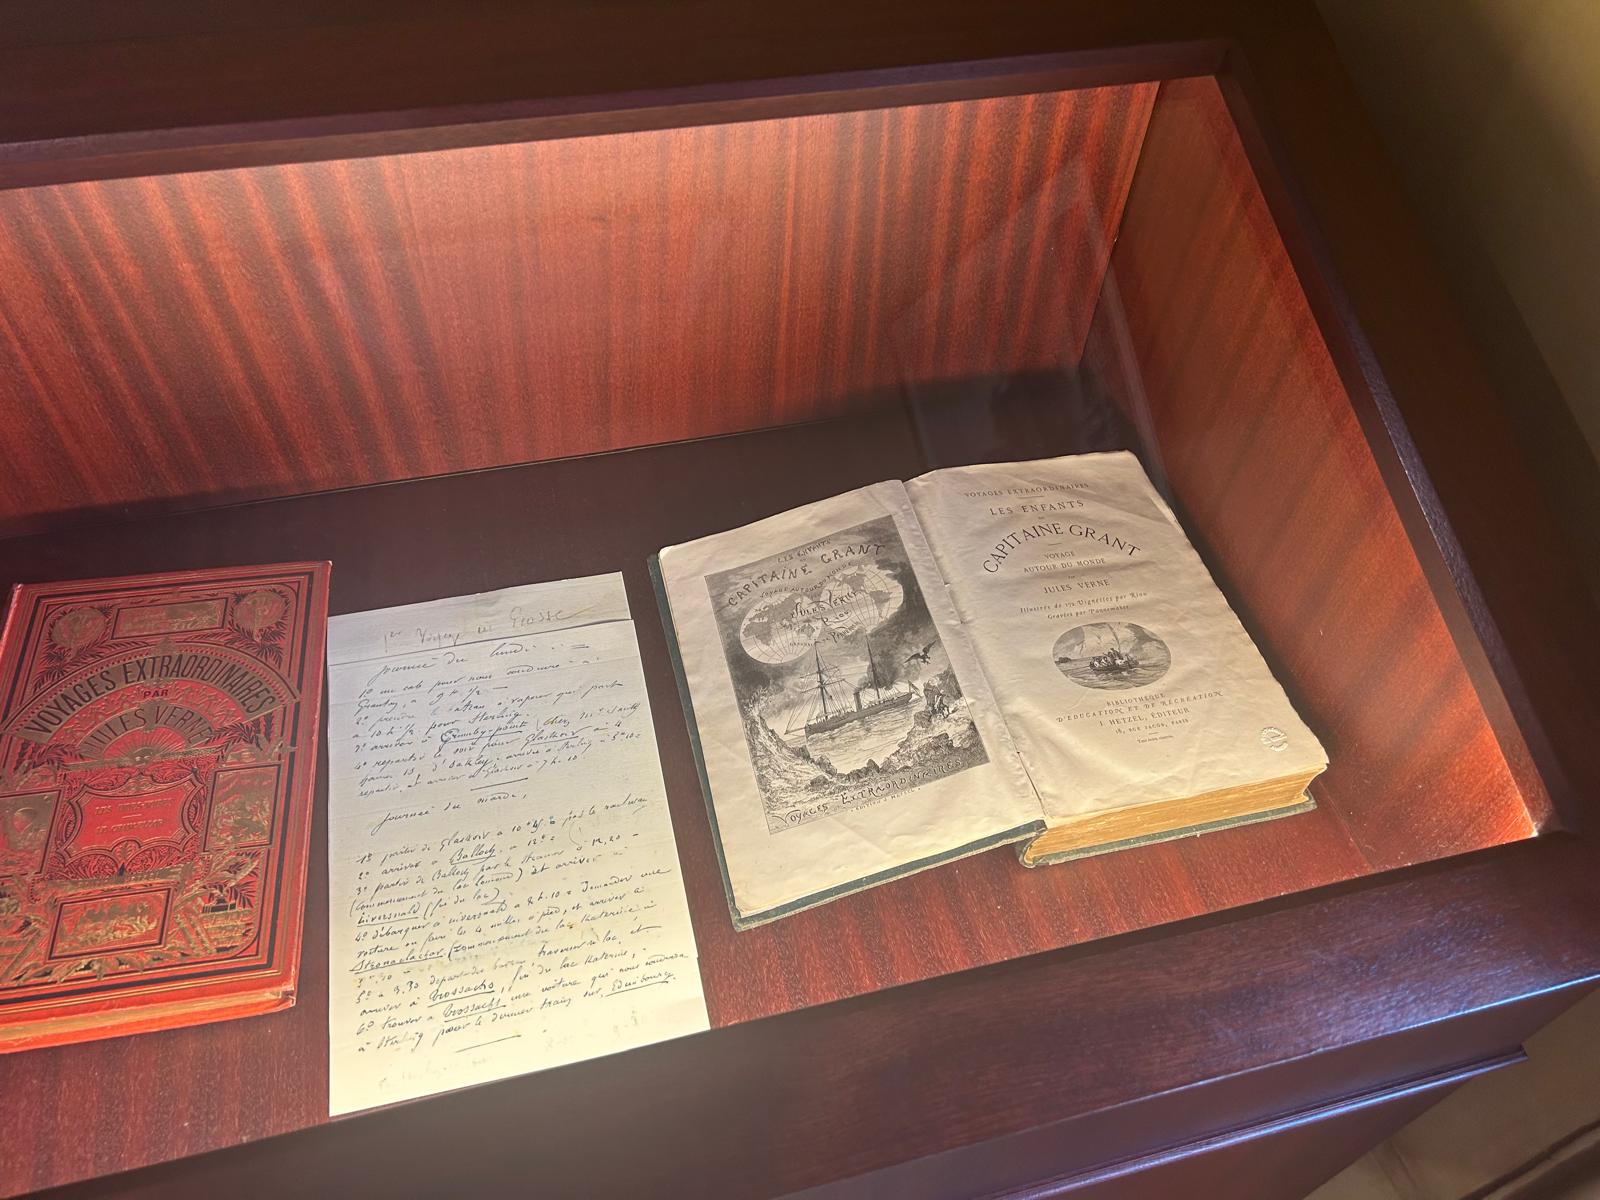 VOYAGES EXTRAORDINAIRES
PAR
JULES VERNE
1er Voyage en Ecosse
Journée du lundi
1º un cab pour nous conduire à
Granton, à 9 h 1/2
2º prendre le bateau à vapeur qui part
à 10 h. 1/2 pour Sterling.
3º arrivée à Crombie-point
4º repartir pour Glascow à 4
heures 15, d'Oakley, arrivée à Sterling à 5h 10
repartir, et arriver à Glascow à 7 h. 10.
Journée du mardi,
1º partir de Glascow à par le railway
2º arrivée à Balloch, à 12h
3º partir de Balloch par le steamer à 12,20
(commencement du lac lomond) et arriver à
Inversnaid (fin du lac)
4º débarquer à inversnaid à 2 h. 10 = Demander une
voiture ou faire les 4 milles à pied, et arriver à
Stronaclachar. (commencement du lac Katerine à
3h 30
5º à 3.30 départ du bateau, traverser le lac, et
arriver à Trossachs, fin du lac Katerine,
6º trouver à Trossachs une voiture qui nous conduira
à Sterling pour le dernier train sur Edimbourg.
LES ENFANTS
DU
CAPITAINE GRANT
VOYAGE AUTOUR DU MONDE
JULES VERNE
RIOU
VOYAGES EXTRAORDINAIRES
EDITION J. HETZEL
VOYAGES EXTRAORDINAIRES
LES ENFANTS
DU
CAPITAINE GRANT
VOYAGE
AUTOUR DU MONDE
PAR
JULES VERNE
Illustrés de 172 Vignettes par Riou
Gravées par Pannemaker
BIBLIOTHÈQUE
D'ÉDUCATION ET DE RÉCRÉATION
J. HETZEL, ÉDITEUR
18, RUE JACOB, PARIS